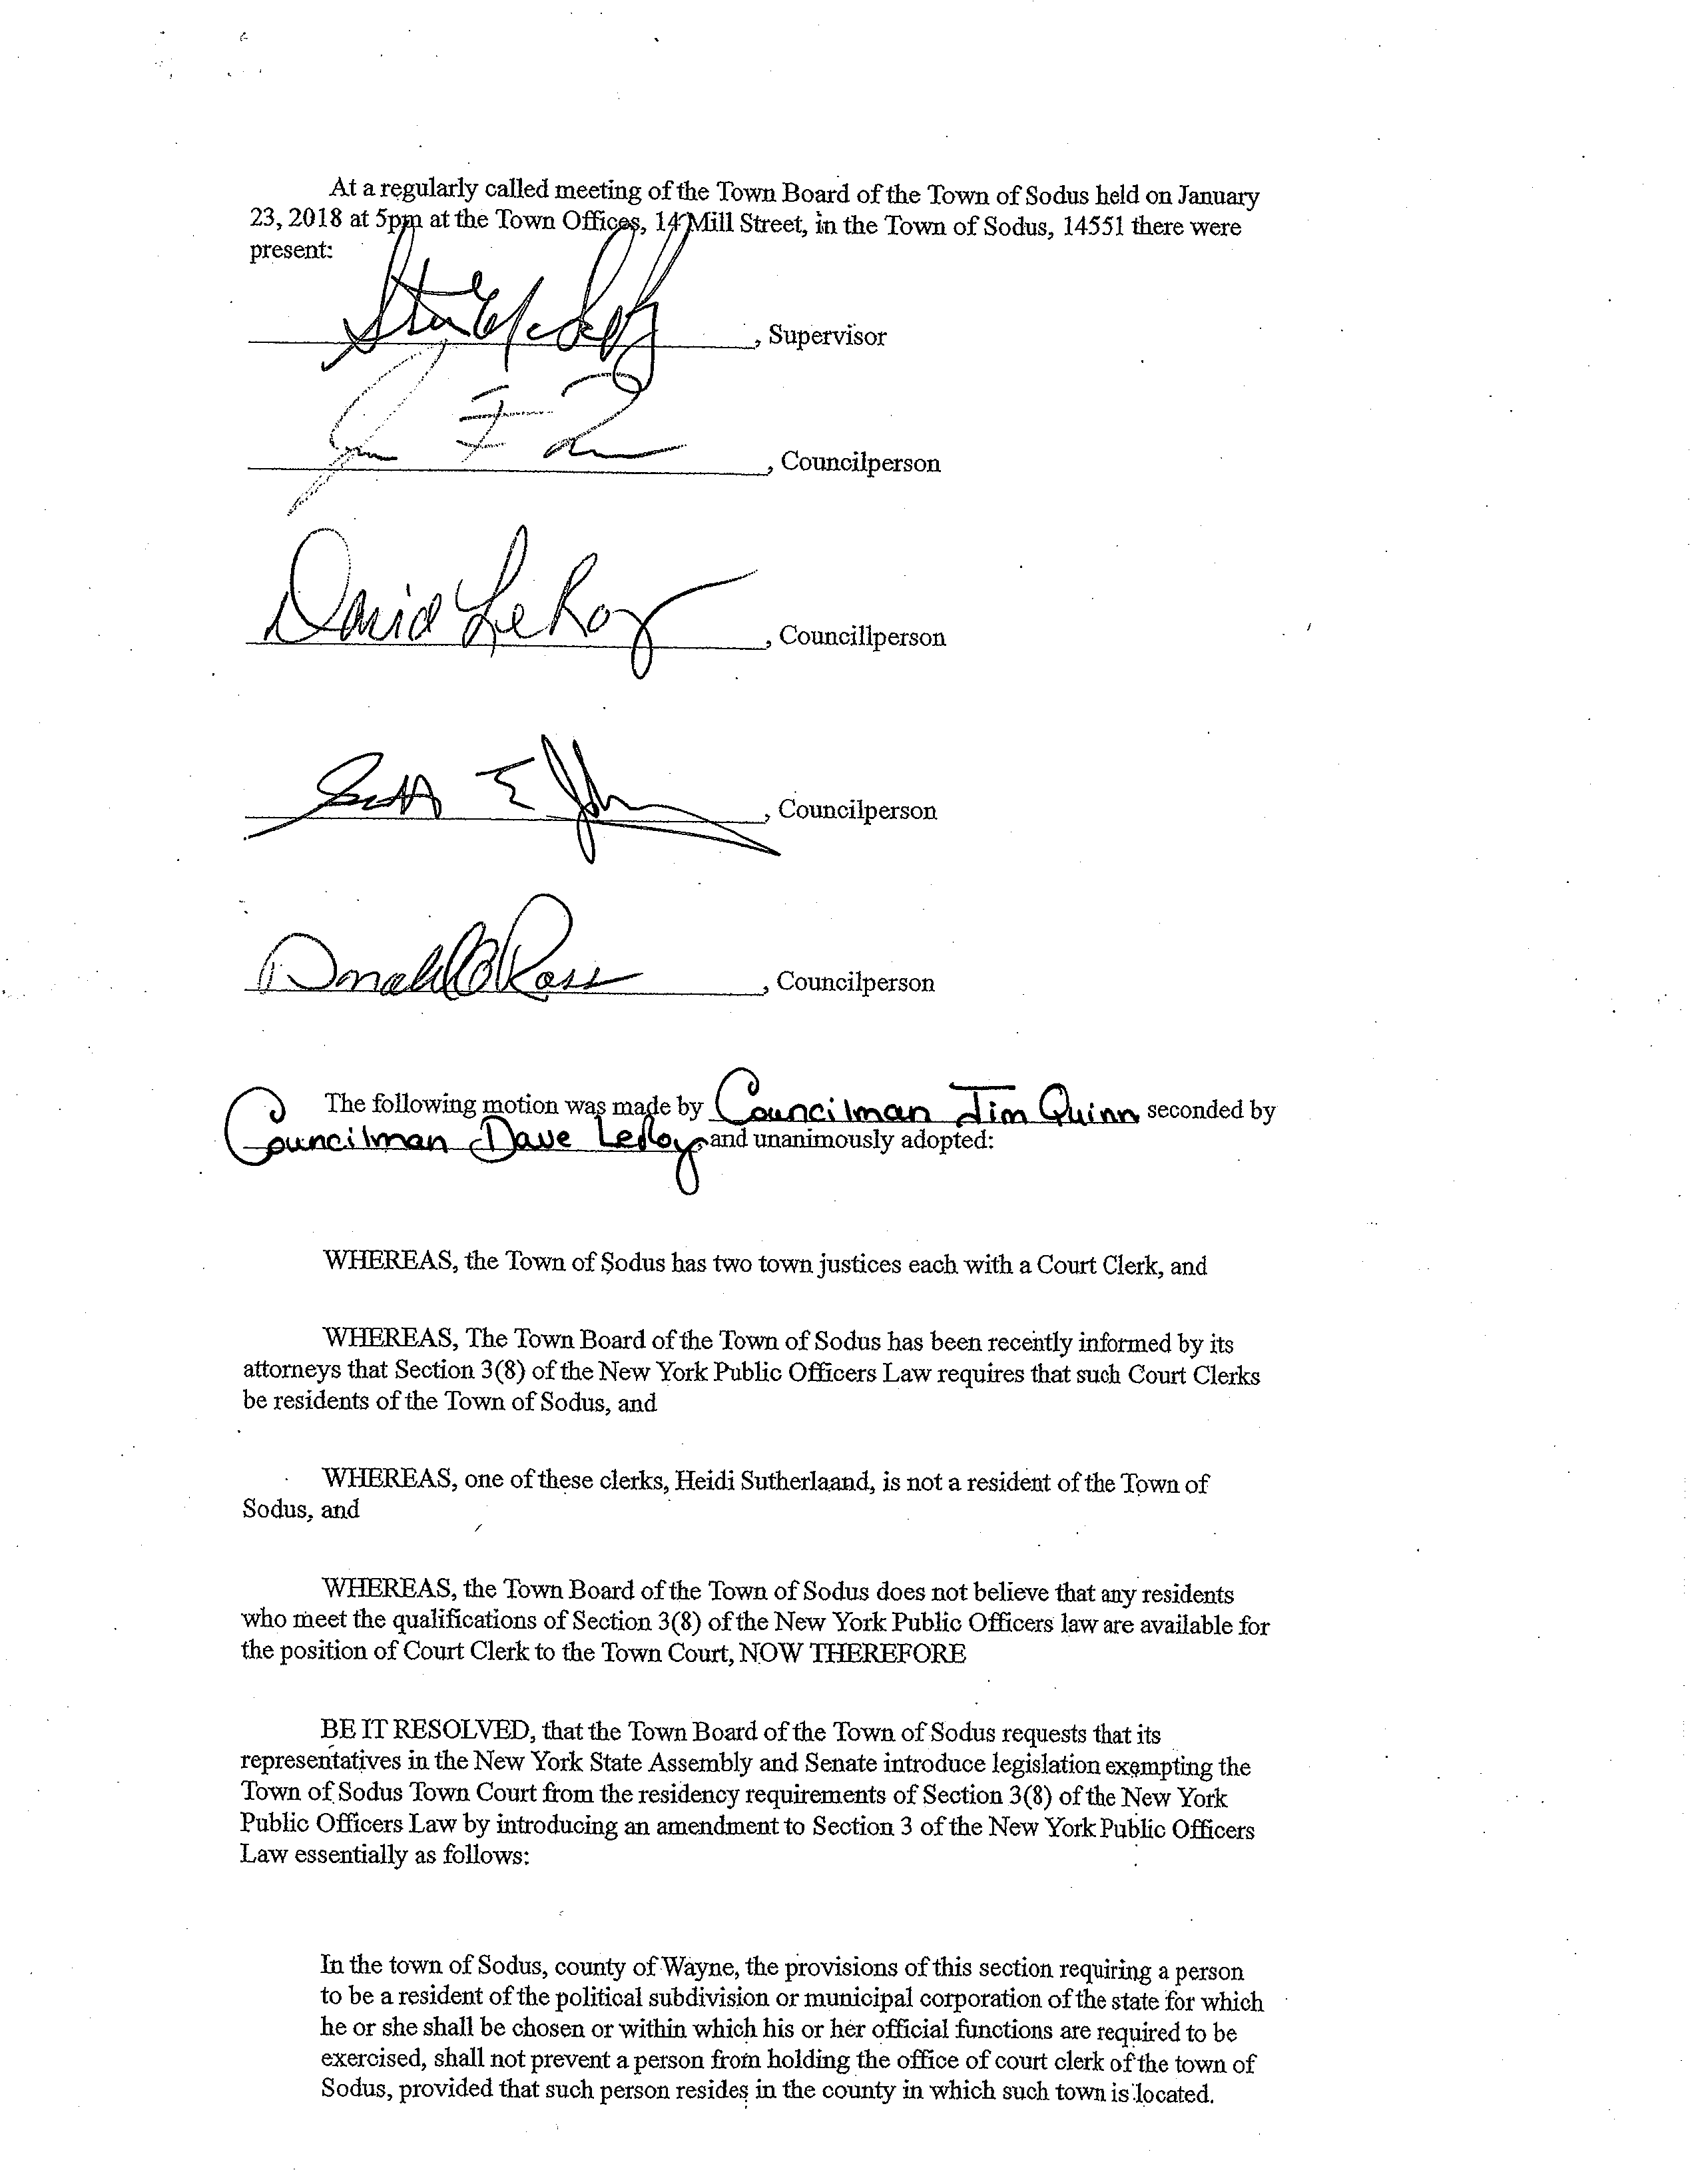 At a regularly called meeting of the Town Board of the Town of Sodus held on January
23, 2018 at 5pm at the Town Offices, 14 Mill Street, in the Town of Sodus, 14551 there were
present:
, Supervisor
, Councilperson
David LeRoy, Councillperson
Scott E Joh, Councilperson
Donald Ross, Councilperson
The following motion was made by Councilman Jim Quinn seconded by
Councilman Dave LeRoy and unanimously adopted:
WHEREAS, the Town of Sodus has two town justices each with a Court Clerk, and
WHEREAS, The Town Board of the Town of Sodus has been recently informed by its
attorneys that Section 3(8) of the New York Public Officers Law requires that such Court Clerks
be residents of the Town of Sodus, and
WHEREAS, one of these clerks, Heidi Sutherlaand, is not a resident of the Town of
Sodus, and
WHEREAS, the Town Board of the Town of Sodus does not believe that any residents
who meet the qualifications of Section 3(8) of the New York Public Officers law are available for
the position of Court Clerk to the Town Court, NOW THEREFORE
BE IT RESOLVED, that the Town Board of the Town of Sodus requests that its
representatives in the New York State Assembly and Senate introduce legislation exempting the
Town of Sodus Town Court from the residency requirements of Section 3(8) of the New York
Public Officers Law by introducing an amendment to Section 3 of the New York Public Officers
Law essentially as follows:
In the town of Sodus, county of Wayne, the provisions of this section requiring a person
to be a resident of the political subdivision or municipal corporation of the state for which
he or she shall be chosen or within which his or her official functions are required to be
exercised, shall not prevent a person from holding the office of court clerk of the town of
Sodus, provided that such person resides in the county in which such town is located.